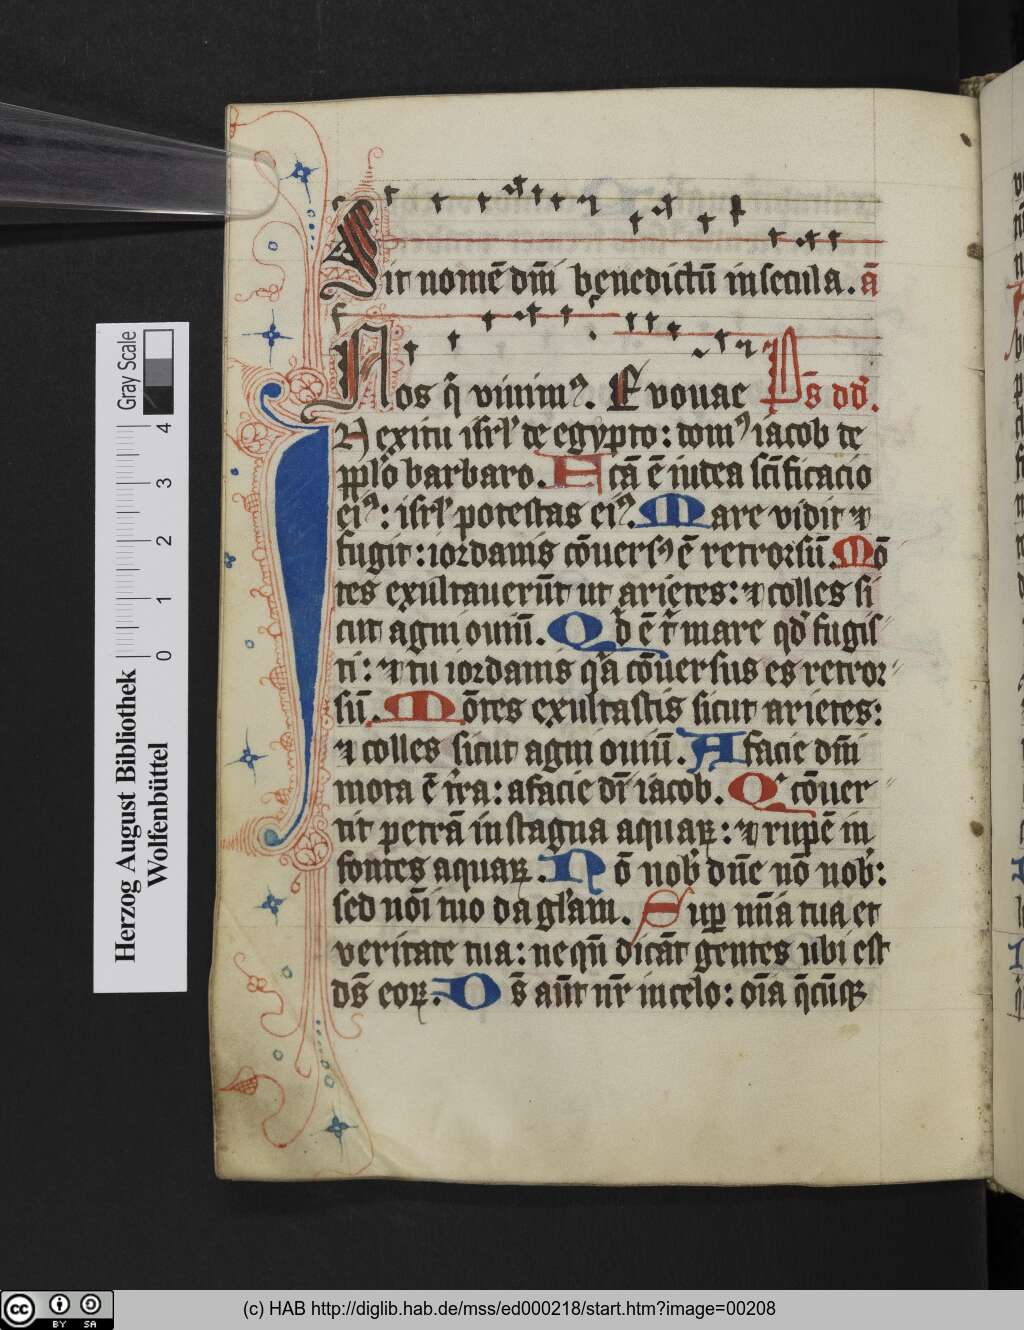 Sit nomē dn̄i benedictū in secula. ā
Nos q̄ viuimꝰ. Evouae Ps̄ dd̄.
In exitu isrl̕ de egypto: domꝰ iacob de
pplō barbaro. Fcā ē iudea scīficacio
eiꝰ: isrl̕ potestas eiꝰ. Mare vidit ⁊
fugit: iordanis cōuersꝰ ē retrorsū. Mō
tes exultauerūt ut arietes: ⁊ colles si
cut agni ouiū. Qd̕ ē t̕ mare qd̕ fugis
ti: ⁊ tu iordanis q̕a cōuersus es retror
sū. Mōtes exultastis sicut arietes:
⁊ colles sicut agni ouiū. A facie dn̄i
mota ē tr̕ra: a facie dī iacob. Q̕ cōuer
tit petrā in stagna aquaꝝ: ⁊ rupē in
fontes aquaꝝ. Nō nob̕ dn̄e nō nob̕:
sed nōi tuo da gl̕am. Suꝑ mīa tua et
veritate tua: neqn̄ dicāt gentes ubi est
ds̄ eoꝝ. Ds̄ aūt nr̄ in celo: oīa q̄cūqꝫ
Herzog August Bibliothek
Wolfenbüttel
Gray Scale
0 1 2 3 4
cc BY SA
(c) HAB http://diglib.hab.de/mss/ed000218/start.htm?image=00208